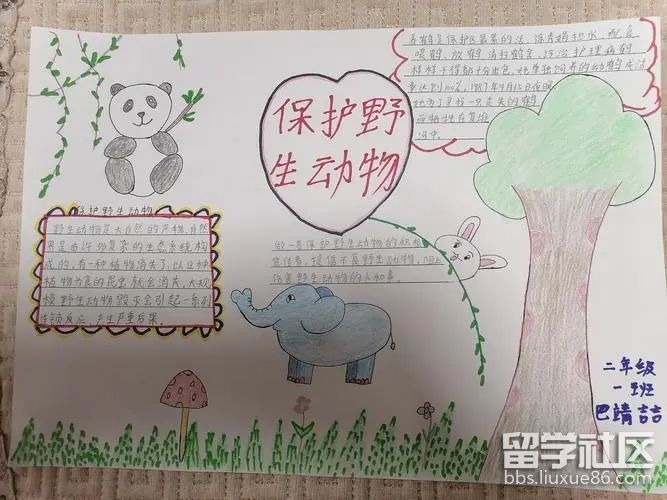 养鹤是保护区最累的活，徐秀娟担水、配食
喂鹤、放鹤、清扫鹤舍、防治护理病鹤
样样干得都十分出色，她单独饲养的幼鹤成活
率达到100%，1987年9月15日夜晚
她为了寻找一只走失的鹤
保护野
生动物
保护野生动物
野生动物是大自然的产物，自然
界是由许多复杂的生态系统构
成的。有一种植物消失了，以这种
植物为食的昆虫就会消失。大规
模野生动物毁灭会引起一系列
连锁反应，产生严重后果。
做一名保护野生动物的积极
宣传员，提倡不食野生动物，阻止
伤害野生动物的人和事。
二年级
一班
巴靖喆
留学社区
bbs.liuxue86.com